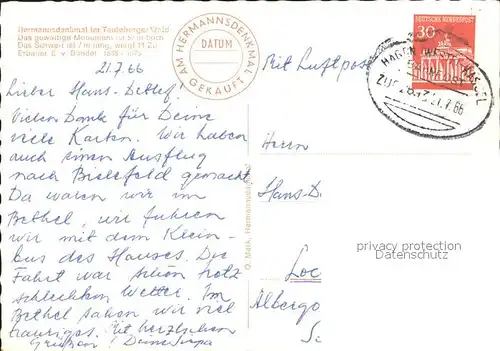 Hermannsdenkmal im Teutoburger Wald
Das gewaltige Monument ist 57 m hoch
Das Schwert ist 7 m lang, wiegt 11 Ztr.
Erbauer E. v. Bandel 1838 - 1875
AM HERMANNSDENKMAL
DATUM
GEKAUFT
DEUTSCHE BUNDESPOST
30
HAGEN (WESTF) - KASSEL
BAHNPOST
21.7.66
21.7.66
Mit Luftpost
Lieber Hans-Detlef!
Vielen Dank für Deine
viele Karten. Wir haben
auch einen Ausflug
nach Bielefeld gemacht.
Da waren wir im
Bethel, wir fuhren
wir mit dem Klein-
bus des Hauses. Die
Fahrt war schön trotz
schlechten Wetter. Im
Bethel sahen wir viel
trauriges. Mit herzlichen
Grüßen Deine
Herrn
Hans-D.
Loc
Albergo
privacy protection
Datenschutz